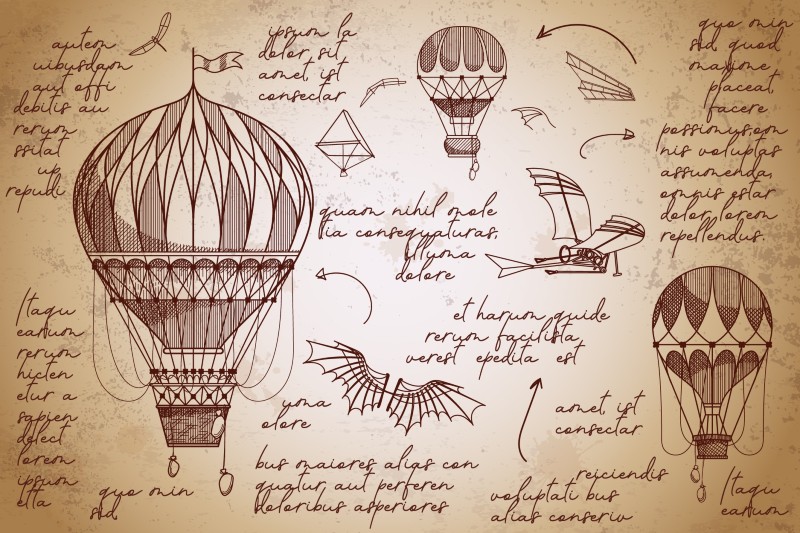 autem
uibusdam
aut offi
debitis au
rerum
ssitat
up
repudi
ipsum la
dolor, sit
amet, ist
consectar
quo min
sid, quod
maxime
placeat
facere
possimus, om
nis voluptas
assumenda,
omnis estar
dolor, lorem
repellendus.
quam nihil mole
tia consequaturas,
illuma
dolore
et harum quide
rerum facilista,
verest epedita est
Itaqu
earum
rerum
hicten
etur a
sapien
delect
lorem
ipsum
elta
uoma
olore
amet, ist
consectar
bus maiores alias con
quatur aut perferen
doloribus asperiores
quo min
sid,
reiciendis
voluptati bus
alias conseriv
Itaqu
earum